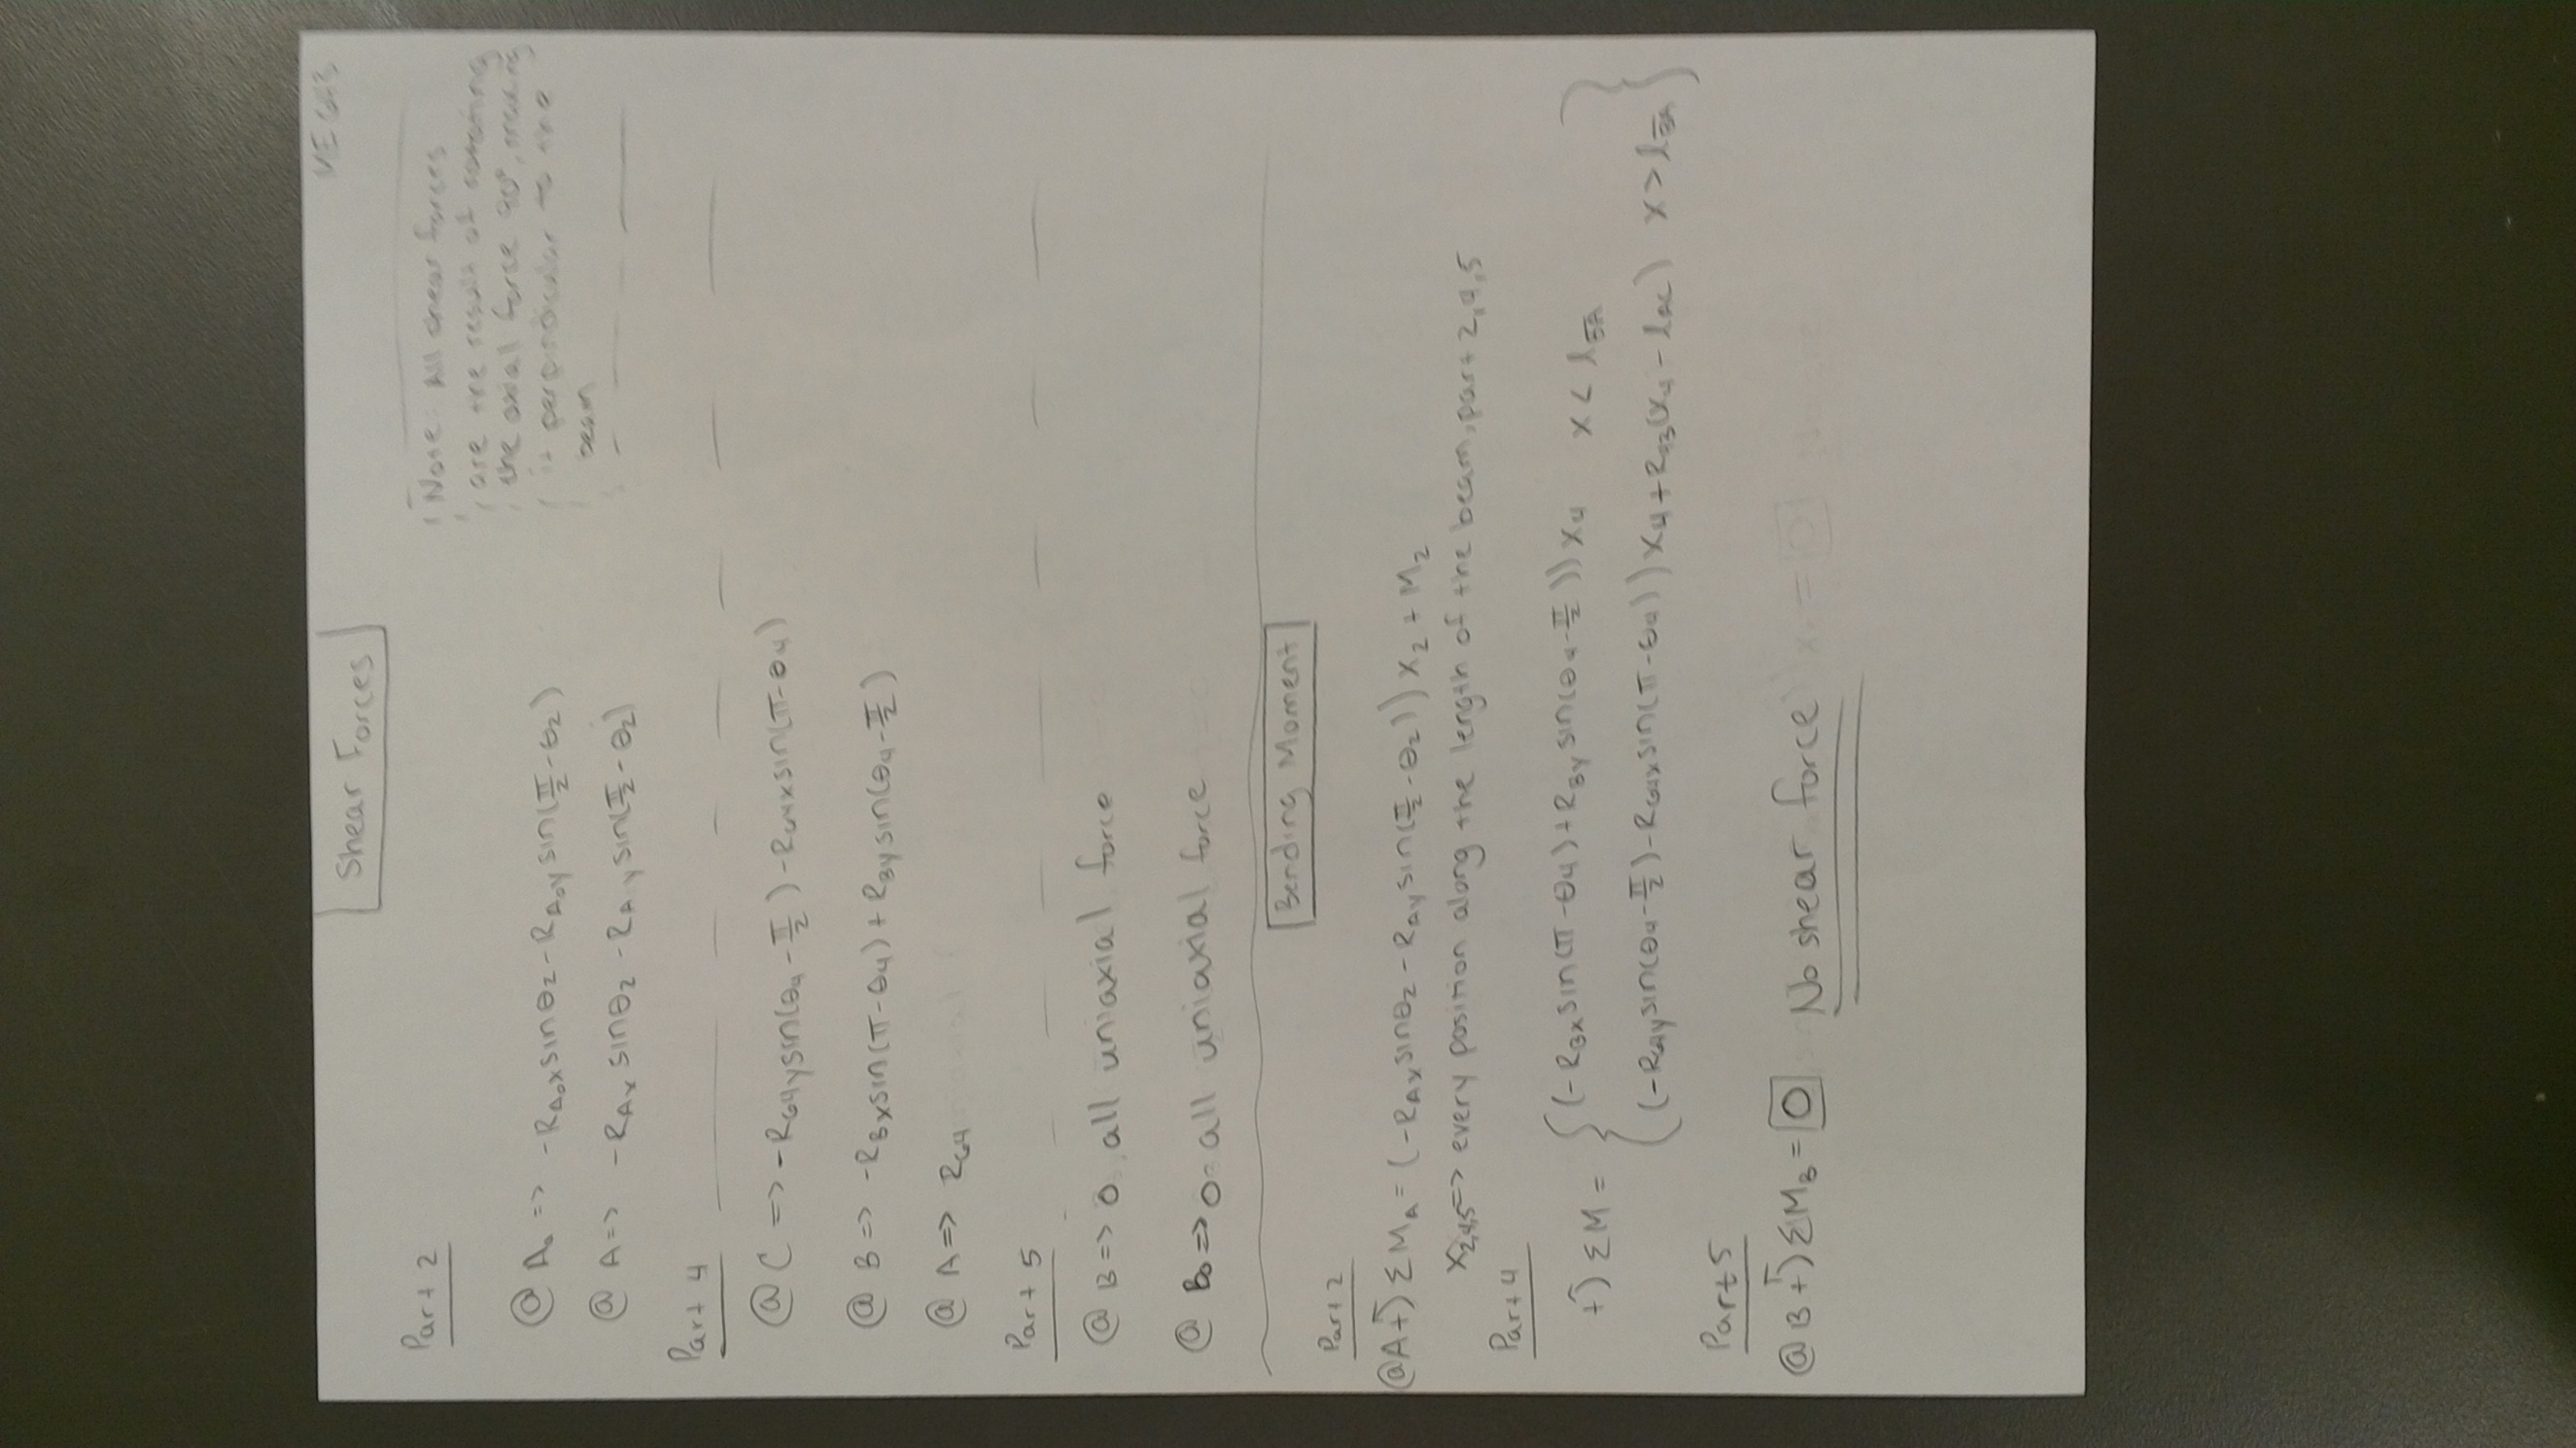 Shear Forces
Note: All shear forces
are the result of rotating
the axial force 90°, making
it perpindicular to the
beam
Part 2
@ A₀ => -R_A₀x sinθ₂ - R_A₀y sin(π/2 - θ₂)
@ A => -R_Ax sinθ₂ - R_Ay sin(π/2 - θ₂)
Part 4
@ C => -R_G4y sin(θ₄ - π/2) - R_G4x sin(π - θ₄)
@ B => -R_Bx sin(π - θ₄) + R_By sin(θ₄ - π/2)
@ A => R_G4
Part 5
@ B => 0, all uniaxial force
@ B₀ => 0 all uniaxial force
Bending Moment
Part 2
@A +) ΣM_A = (-R_Ax sinθ₂ - R_Ay sin(π/2 - θ₂)) x₂ + M₂
x₂,₄,₅ => every position along the length of the beam, part 2,4,5
Part 4
+) ΣM = { (-R_Bx sin(π - θ₄) + R_By sin(θ₄ - π/2)) x₄ x < l_BA }
{ (-R_G4y sin(θ₄ - π/2) - R_G4x sin(π - θ₄)) x₄ + R_43(x₄ - l_AC) x > l_BA }
Part 5
@ B +) ΣM_B = 0 No shear force